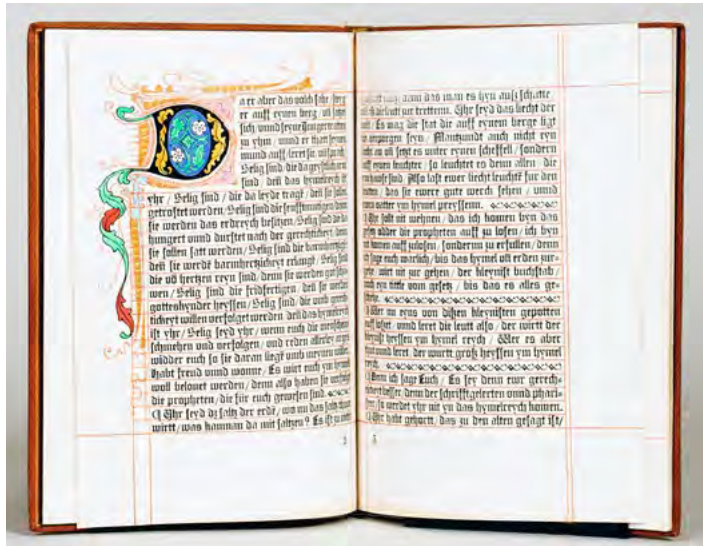 Da er aber das volck sahe / steig
er auff eynen berg / vñ satzt
sich / vnnd seyne Jungern tratten
zu yhm / vnnd er thatt seynen
mund auff / leret sie / vñ sprach
Selig sind / die da geystlich arm
sind / deñ das hymelreych ist
yhr / Selig sind / die da leyde tragē / deñ sie sollen
getrostet werden / Selig sind die senfftmutigen / denn
sie werden das erdreych besitzen / Selig sind die da
hungert vnnd durstet nach der gerechtickeyt / denn
sie sollen satt werden / Selig sind die barmhertzigē
deñ sie werdē barmhertzickeyt erlangē / Selig sind
die võ hertzen reyn sind / denn sie werden got scha-
wen / Selig sind die fridfertigen / deñ sie werden
gottes kynder heyssen / Selig sind / die vmb gerech-
tickeyt willen verfolget werden / deñ das hymelreych
ist yhr / Selig seyd yhr / wenn euch die menschen
schmehen vnd verfolgen / vnd reden allerley arges
widder euch / so sie daran liegē vmb meynen willen
Habt freud vnnd wonne / Es wirt euch ym hymel
woll belonet werden / denn also haben sie verfolget
die propheten / die fur euch gewesen sind
Yhr seyd dz saltz der erdē / wo nu das saltz thum
wirtt / was kan man da mit saltzen ? Es ist zu nicht
2
nutz / dann das man es hyn auß schutte
die leutt zur tretten. Yhr seyd das liecht der
Es mag die stat die auff eynem berge ligt
verporgen seyn / Man zundt auch nicht eyn
an vñ setzt es vnter eynen scheffell / sondern
auff eynen leuchter / so leuchtet es denn allen / die
ym hause sind Also last ewer liecht leuchtē fur den
leutten / das sie ewer gute werch sehen / vnnd
ewren vatter ym hymel preyssenn.
Yhr solt nit wehnen / das ich komen byn das
odder die propheten auff zu losen / ich byn
komen auff zulosen / sonderrnn zu erfullen / denn
sage euch warlich / bis das hymel vñ erden zur-
wirt nit zur gehen / der kleynist buchstab /
eyn tittle vom gesetz / bis das es alles ge-
schehe.
Wer nu eyns von dißen kleynisten gepotten
auff losset / vnnd leret die leutt also / der wirtt der
kleynist heyssen ym hymel reych / Wer es aber
thutt vnnd leret / der wirtt groß heyssen ym hymel
reych.
Denn ich sage Euch / Es sey denn ewr gerech-
besser / denn der schrifftgelerten vnnd phari-
so werdet yhr nit yn das hymelreych komen.
Yhr habt gehortt / das zu den alten gesagt ist /
3